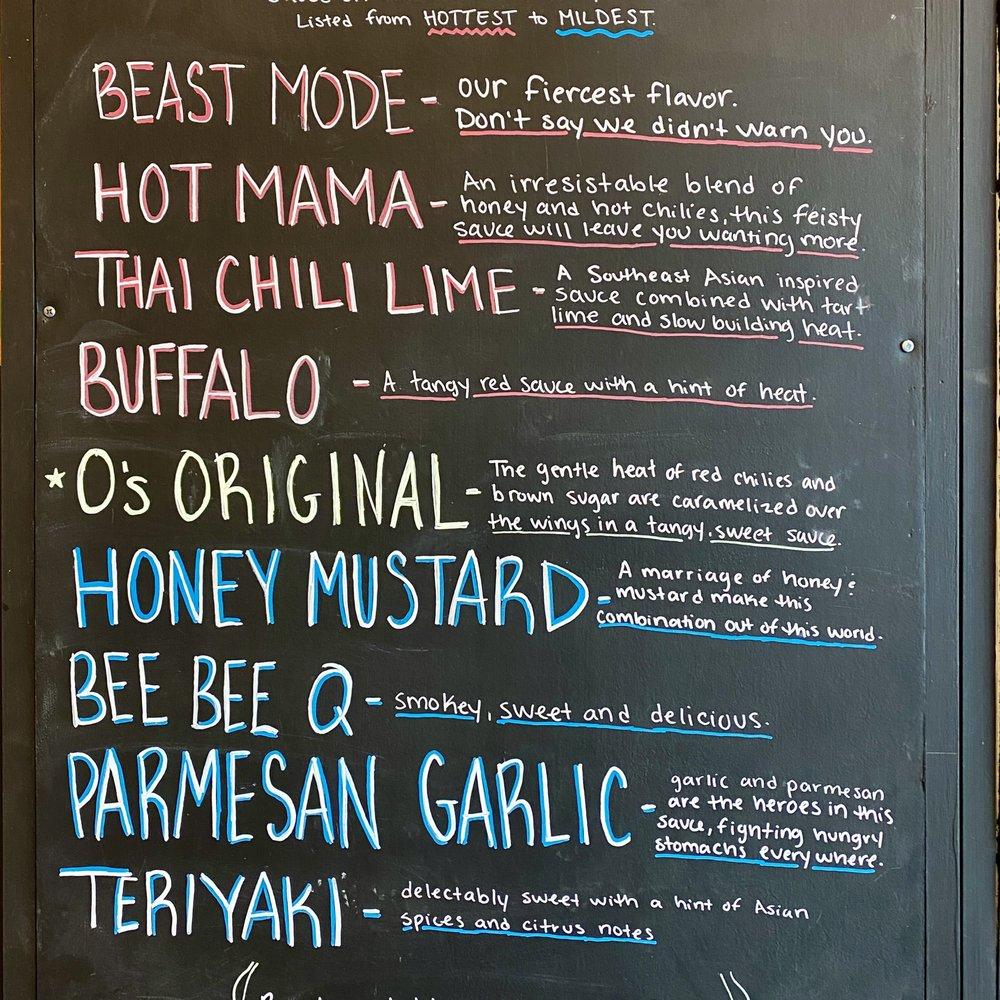 Listed from HOTTEST to MILDEST.
BEAST MODE - our fiercest flavor.
Don't say we didn't warn you.
HOT MAMA - An irresistable blend of
honey and hot chilies, this feisty
sauce will leave you wanting more.
THAI CHILI LIME - A Southeast Asian inspired
sauce combined with tart
lime and slow building heat.
BUFFALO - A tangy red sauce with a hint of heat.
*O's ORIGINAL - The gentle heat of red chilies and
brown sugar are caramelized over
the wings in a tangy, sweet sauce.
HONEY MUSTARD - A marriage of honey &
mustard make this
combination out of this world.
BEE BEE Q - smokey, sweet and delicious.
PARMESAN GARLIC - garlic and parmesan
are the heroes in this
sauce, fighting hungry
stomachs everywhere.
TERIYAKI - delectably sweet with a hint of Asian
spices and citrus notes